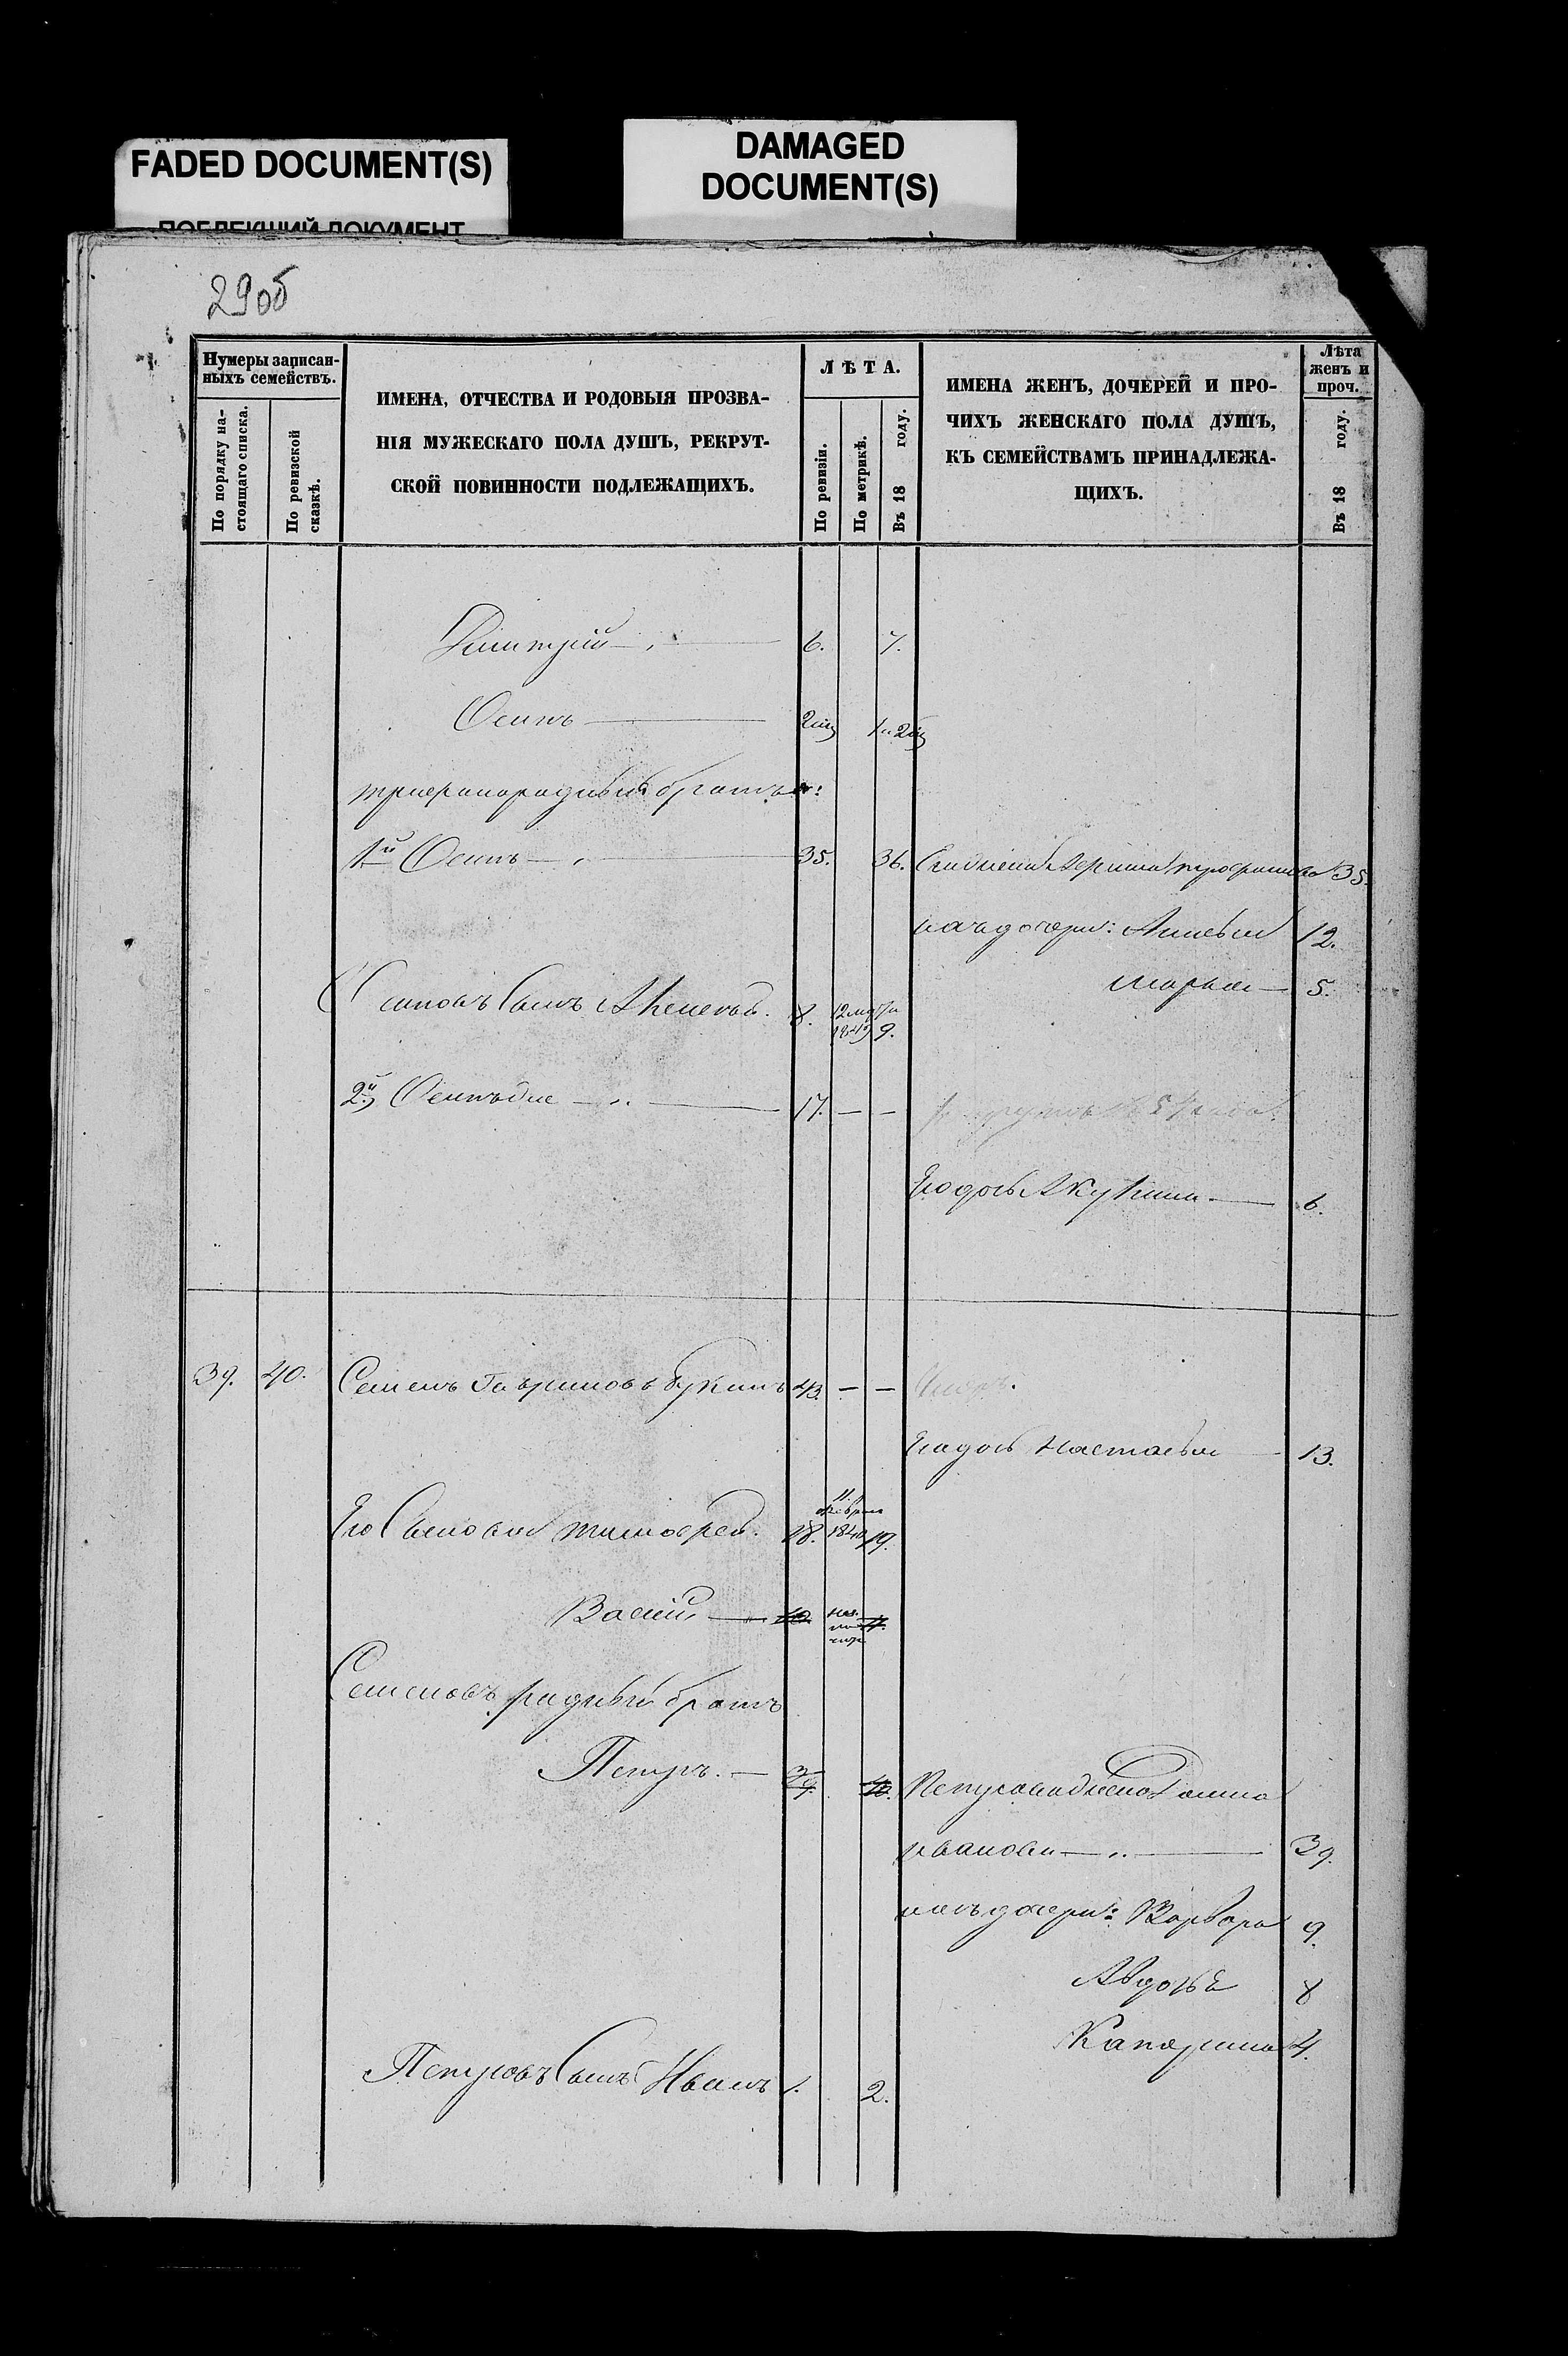 FADED DOCUMENT(S)
DAMAGED
DOCUMENT(S)
ПОБЛЕКШИЙ ДОКУМЕНТ
29об
Нумеры записан-
ныхъ семействъ.
По порядку на-
стоящаго списка.
По ревизской
сказкѣ.
ИМЕНА, ОТЧЕСТВА И РОДОВЫЯ ПРОЗВА-
НІЯ МУЖЕСКАГО ПОЛА ДУШЪ, РЕКРУТ-
СКОЙ ПОВИННОСТИ ПОДЛЕЖАЩИХЪ.
ЛѢТА.
По ревизіи.
По метрикѣ.
Въ 18 году.
ИМЕНА ЖЕНЪ, ДОЧЕРЕЙ И ПРО-
ЧИХЪ ЖЕНСКАГО ПОЛА ДУШЪ,
КЪ СЕМЕЙСТВАМЪ ПРИНАДЛЕЖА-
ЩИХЪ.
Лѣта
женъ и
проч.
Въ 18 году.
Дмитрий 6. 7.
Осипъ
братья:
1й Осипъ 35. 36. 35.
12.
Марья 5.
сынъ Алексей. 8. 9.
2й Осипъ же 17. — —
Его дочь Акулина 6.
39. 40. Семенъ Гавриловъ Букинъ 43. — —
Его дочь Настасья 13.
11
февраля
Его сыновья Тимофей. 18. 1840 19.
Василий
Семеновъ родный братъ
Петръ. 39. 40. Петрова жена
Иванова 39.
ихъ дочери: Варвара 9.
Авдотья 8
Катерина 4.
Петровъ сынъ Иванъ 1. 2.